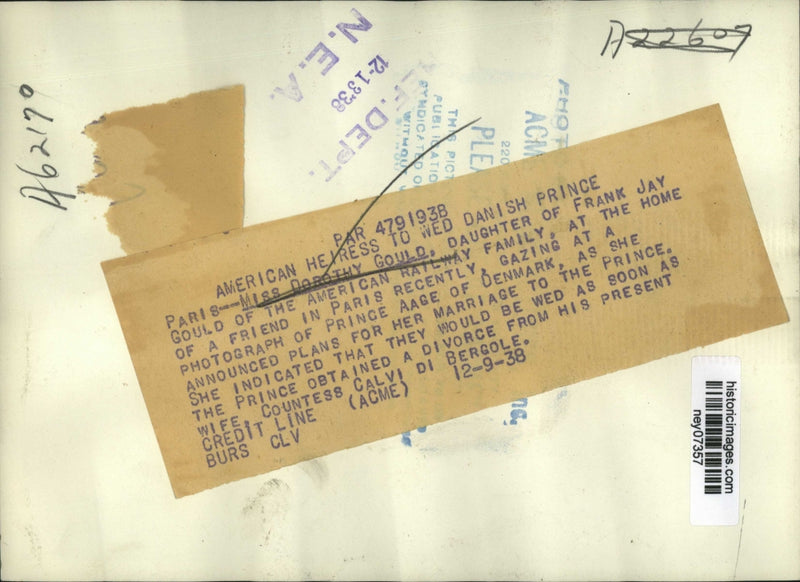 A22607
A62179
N.E.A.
12-13'38
REF. DEPT.
ACME
THIS PICT
PUBLICATION
SYNDICATED O
WITHOU
PLEA
220
PAR 479193B
AMERICAN HEIRESS TO WED DANISH PRINCE
PARIS--MISS DOROTHY GOULD, DAUGHTER OF FRANK JAY
GOULD OF THE AMERICAN RAILWAY FAMILY, AT THE HOME
OF A FRIEND IN PARIS RECENTLY, GAZING AT A
PHOTOGRAPH OF PRINCE AAGE OF DENMARK, AS SHE
ANNOUNCED PLANS FOR HER MARRIAGE TO THE PRINCE.
SHE INDICATED THAT THEY WOULD BE WED AS SOON AS
THE PRINCE OBTAINED A DIVORCE FROM HIS PRESENT
WIFE, COUNTESS CALVI DI BERGOLE.
CREDIT LINE (ACME) 12-9-38
BURS CLV
historicimages.com
ney07357